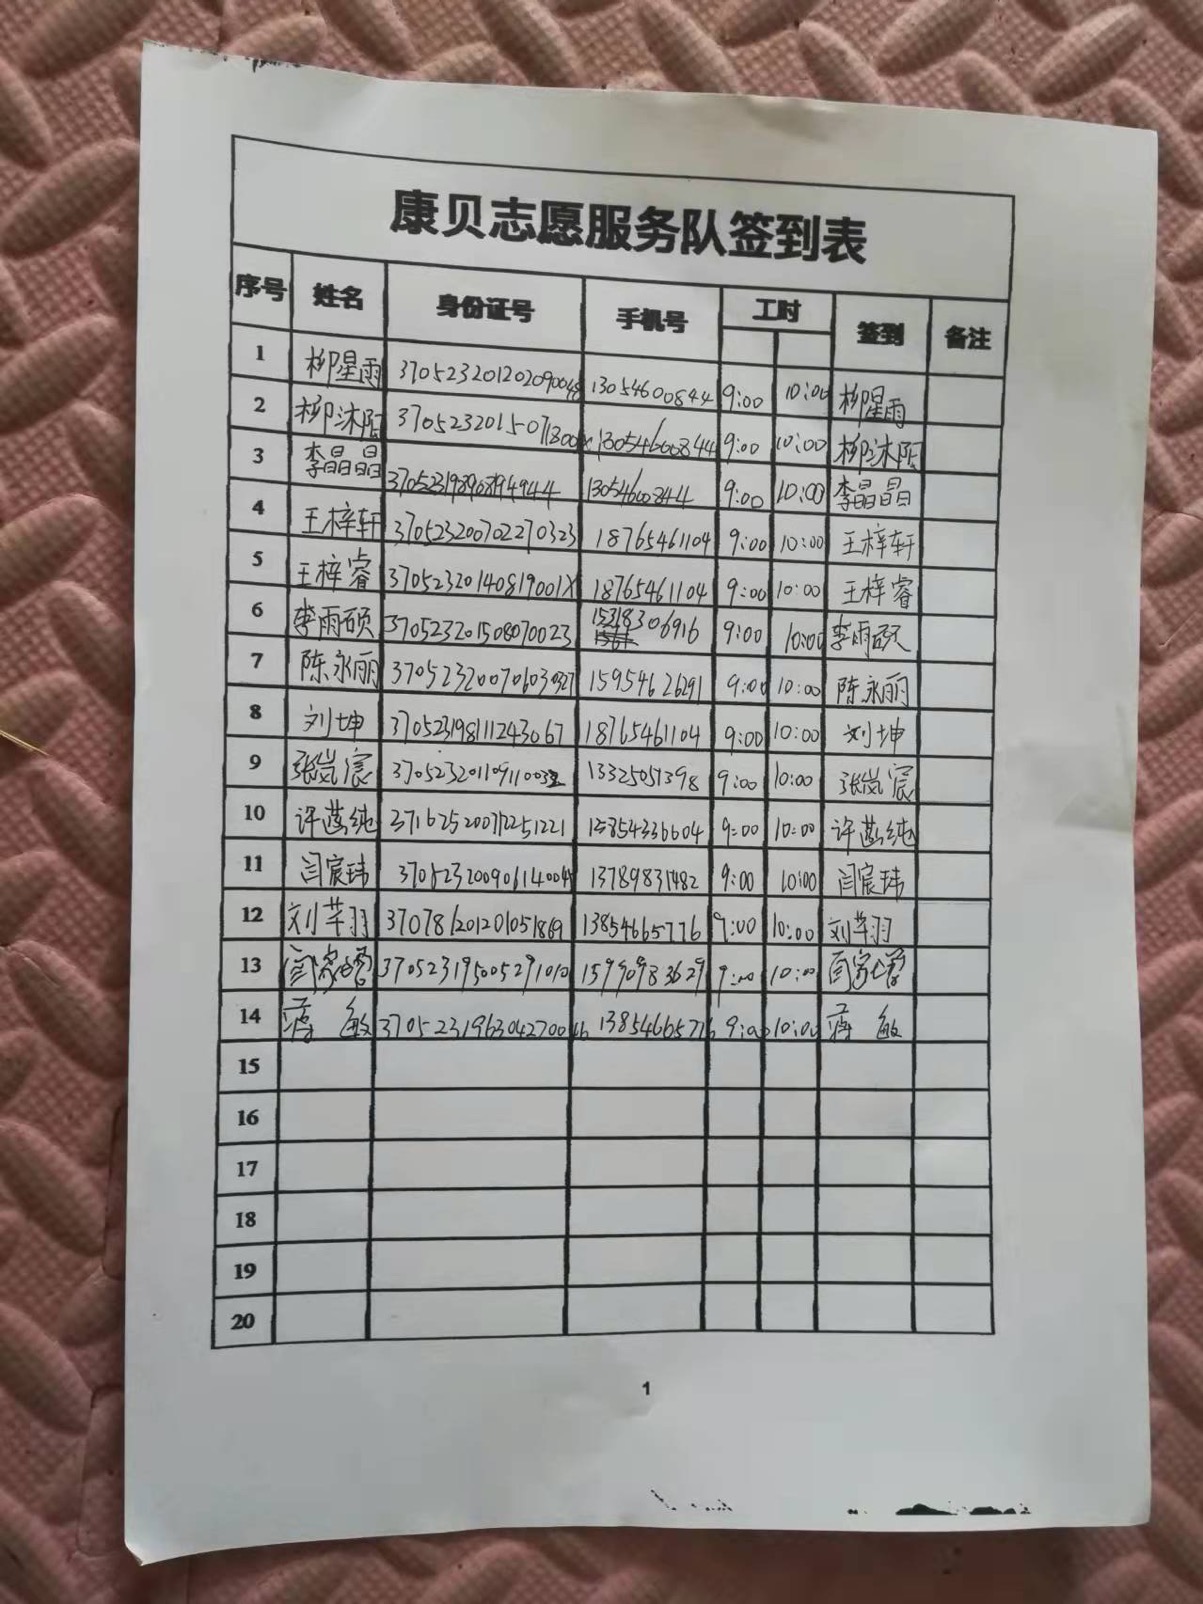 康贝志愿服务队签到表
序号 姓名 身份证号 手机号 工时 签到 备注
1 柳星雨 13054600844 9:00 10:00 柳星雨
2 柳沐阳 13054600844 9:00 10:00 柳沐阳
3 李晶晶 9:00 10:00 李晶晶
4 王梓轩 370523200702270323 18765461104 9:00 10:00 王梓轩
5 王梓睿 37052320140819001X 18765461104 9:00 10:00 王梓睿
6 李雨硕 370523201508070023 15318306916 9:00 10:00 李雨硕
7 陈永丽 15954626291 9:00 10:00 陈永丽
8 刘坤 370523198111243067 18765461104 9:00 10:00 刘坤
9 张岚宸 13325051398 9:00 10:00 张岚宸
10 许 纯 371625200712251221 15854336604 9:00 10:00 许 纯
11 闫宸玮 13789831482 9:00 10:00 闫宸玮
12 刘芊羽 370781201201051869 13854665776 9:00 10:00 刘芊羽
13 370523195005291010 15990983629 9:00 10:00
14 蒋敏 370523196304270046 9:00 10:00 蒋敏
15
16
17
18
19
20
1